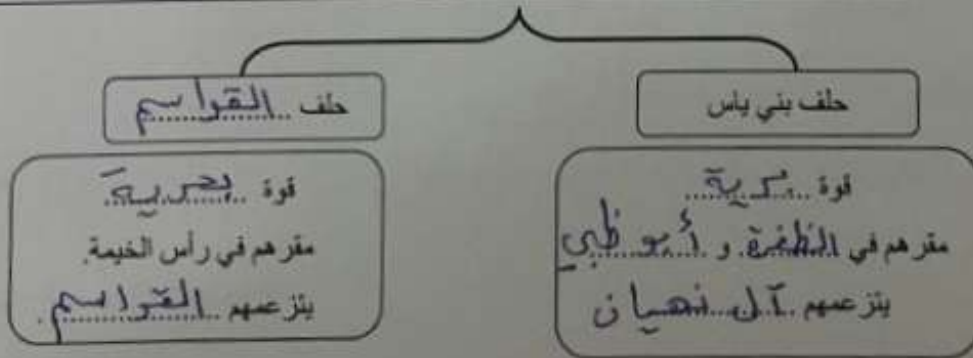 حلف بني ياس
قوة برية
مقرهم في الظفرة و أبو ظبي
يتزعمهم آل نهيان
حلف القواسم
قوة بحرية
مقرهم في رأس الخيمة.
يتزعمهم القواسم.